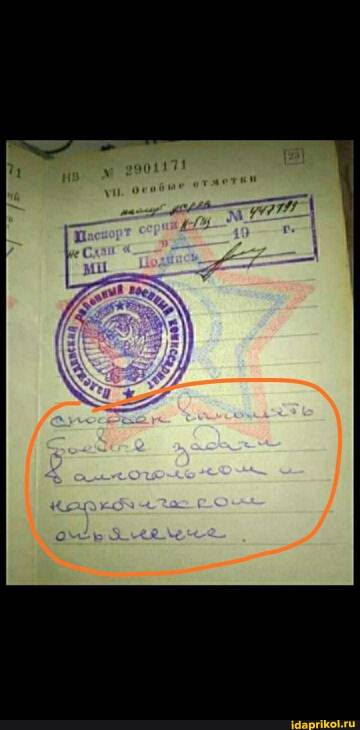 23
НВ № 2901171
VII. Особые отметки
паспорт
Паспорт серии № 447798
не Сдан « » 19 г.
МП Подпись
районный военный комиссариат
способен выполнять
боевые задачи
в алкогольном и
наркотическом
опьянение.
idaprikol.ru